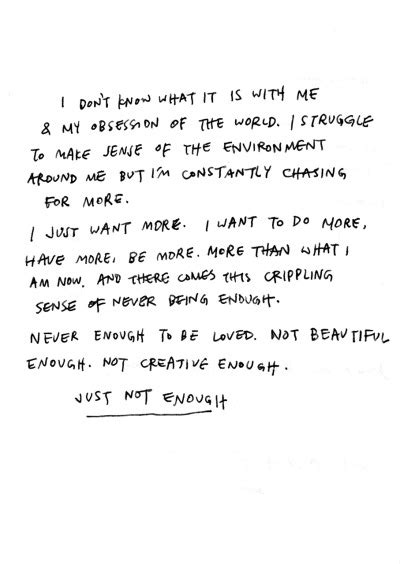 I DON'T KNOW WHAT IT IS WITH ME
& MY OBSESSION OF THE WORLD. I STRUGGLE
TO MAKE SENSE OF THE ENVIRONMENT
AROUND ME BUT I'M CONSTANTLY CHASING
FOR MORE.
I JUST WANT MORE. I WANT TO DO MORE,
HAVE MORE, BE MORE. MORE THAN WHAT I
AM NOW. AND THERE COMES THIS CRIPPLING
SENSE OF NEVER BEING ENOUGH.
NEVER ENOUGH TO BE LOVED. NOT BEAUTIFUL
ENOUGH. NOT CREATIVE ENOUGH.
JUST NOT ENOUGH